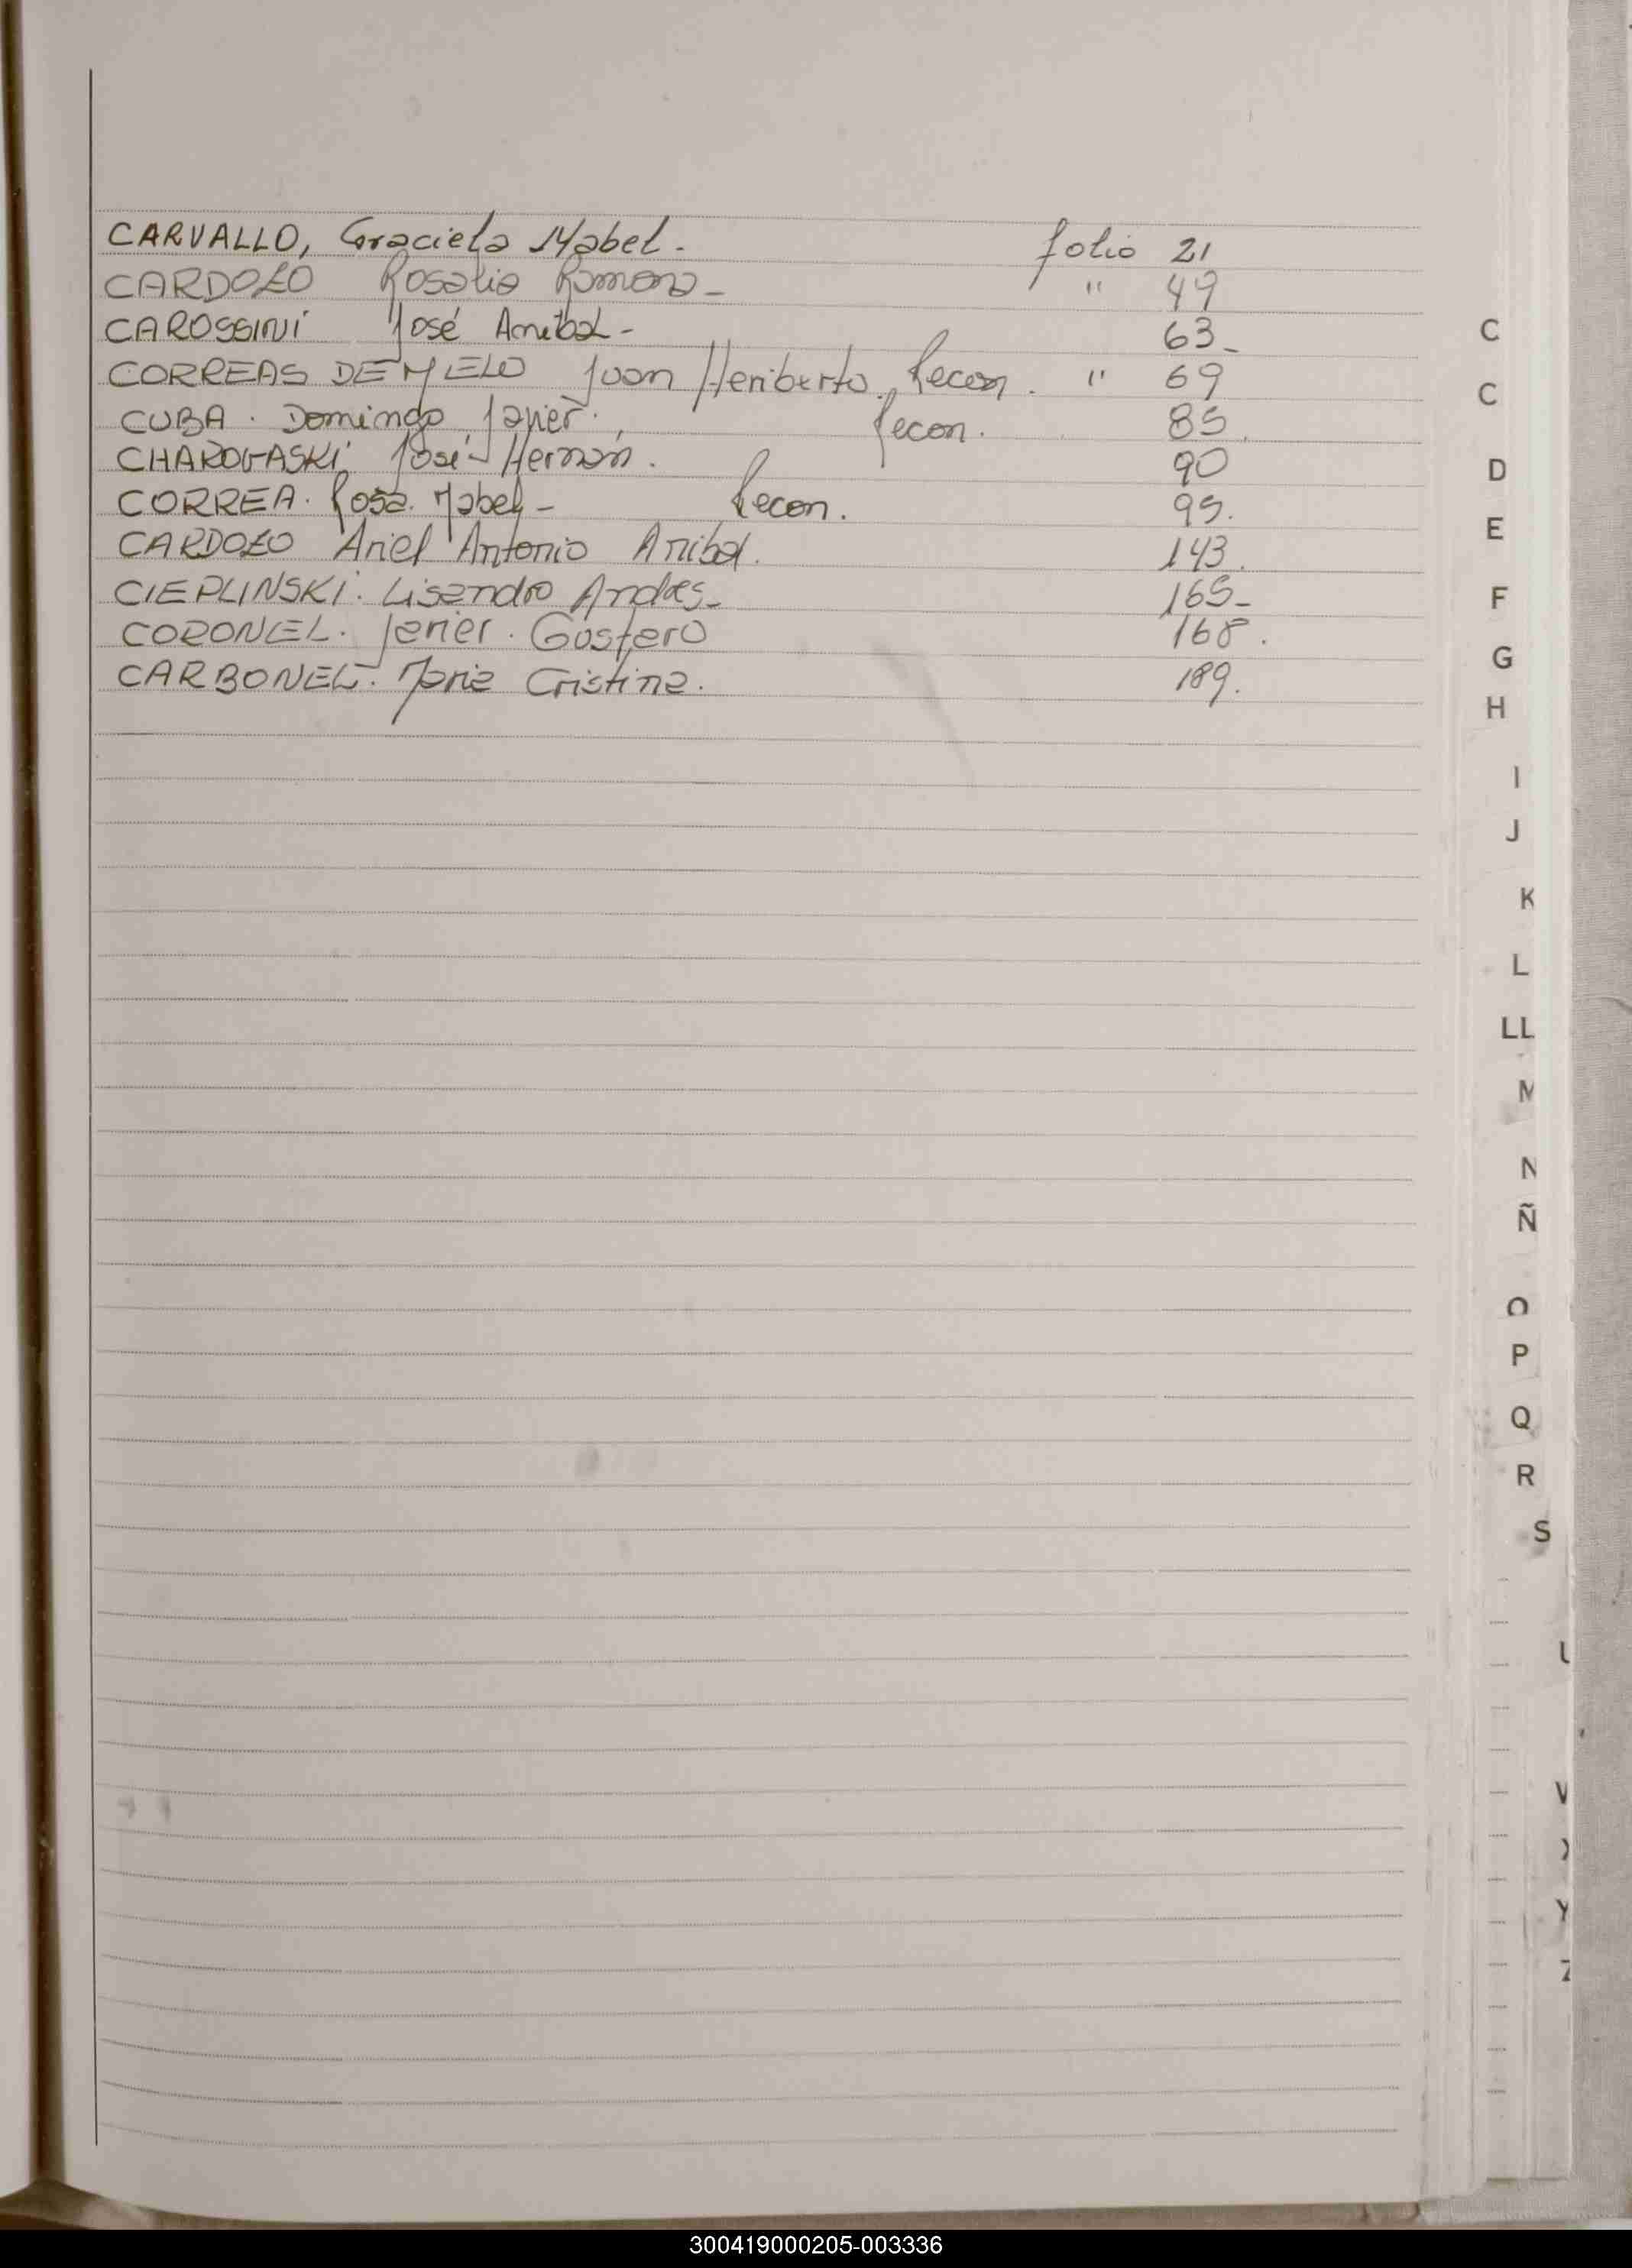 CARVALLO, Graciela Mabel. folio 21
CARDOZO Rosalia Ramona - " 49
CAROSSINI José Anibal - 63-
CORREAS DE MELO Juan Heriberto. Recon. " 69
CUBA. Domingo Javier. Recon. 85.
José Hernán. 90
CORREA. Rosa. Mabel - Recon. 95.
CARDOZO Ariel Antonio Anibal. 143.
CIEPLINSKI. Lisandro Andres- 165-
CORONEL. Javier. Gustavo 168.
CARBONEL. Maria Cristina. 189.
C
C
D
E
F
G
H
I
J
K
L
LL
M
N
Ñ
O
P
Q
R
S
U
V
X
Y
Z
300419000205-003336